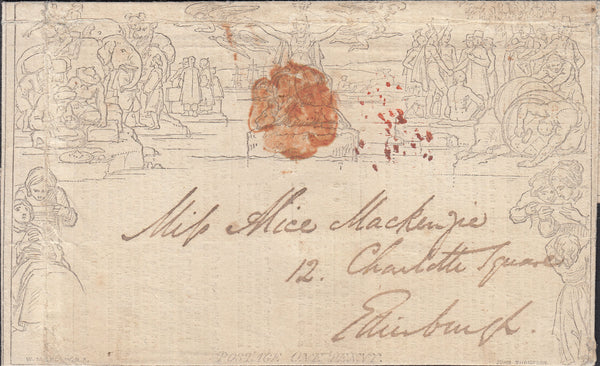 Miſs Alice Mackenzie
12. Charlotte Square
Edinburgh.
POSTAGE ONE PENNY.